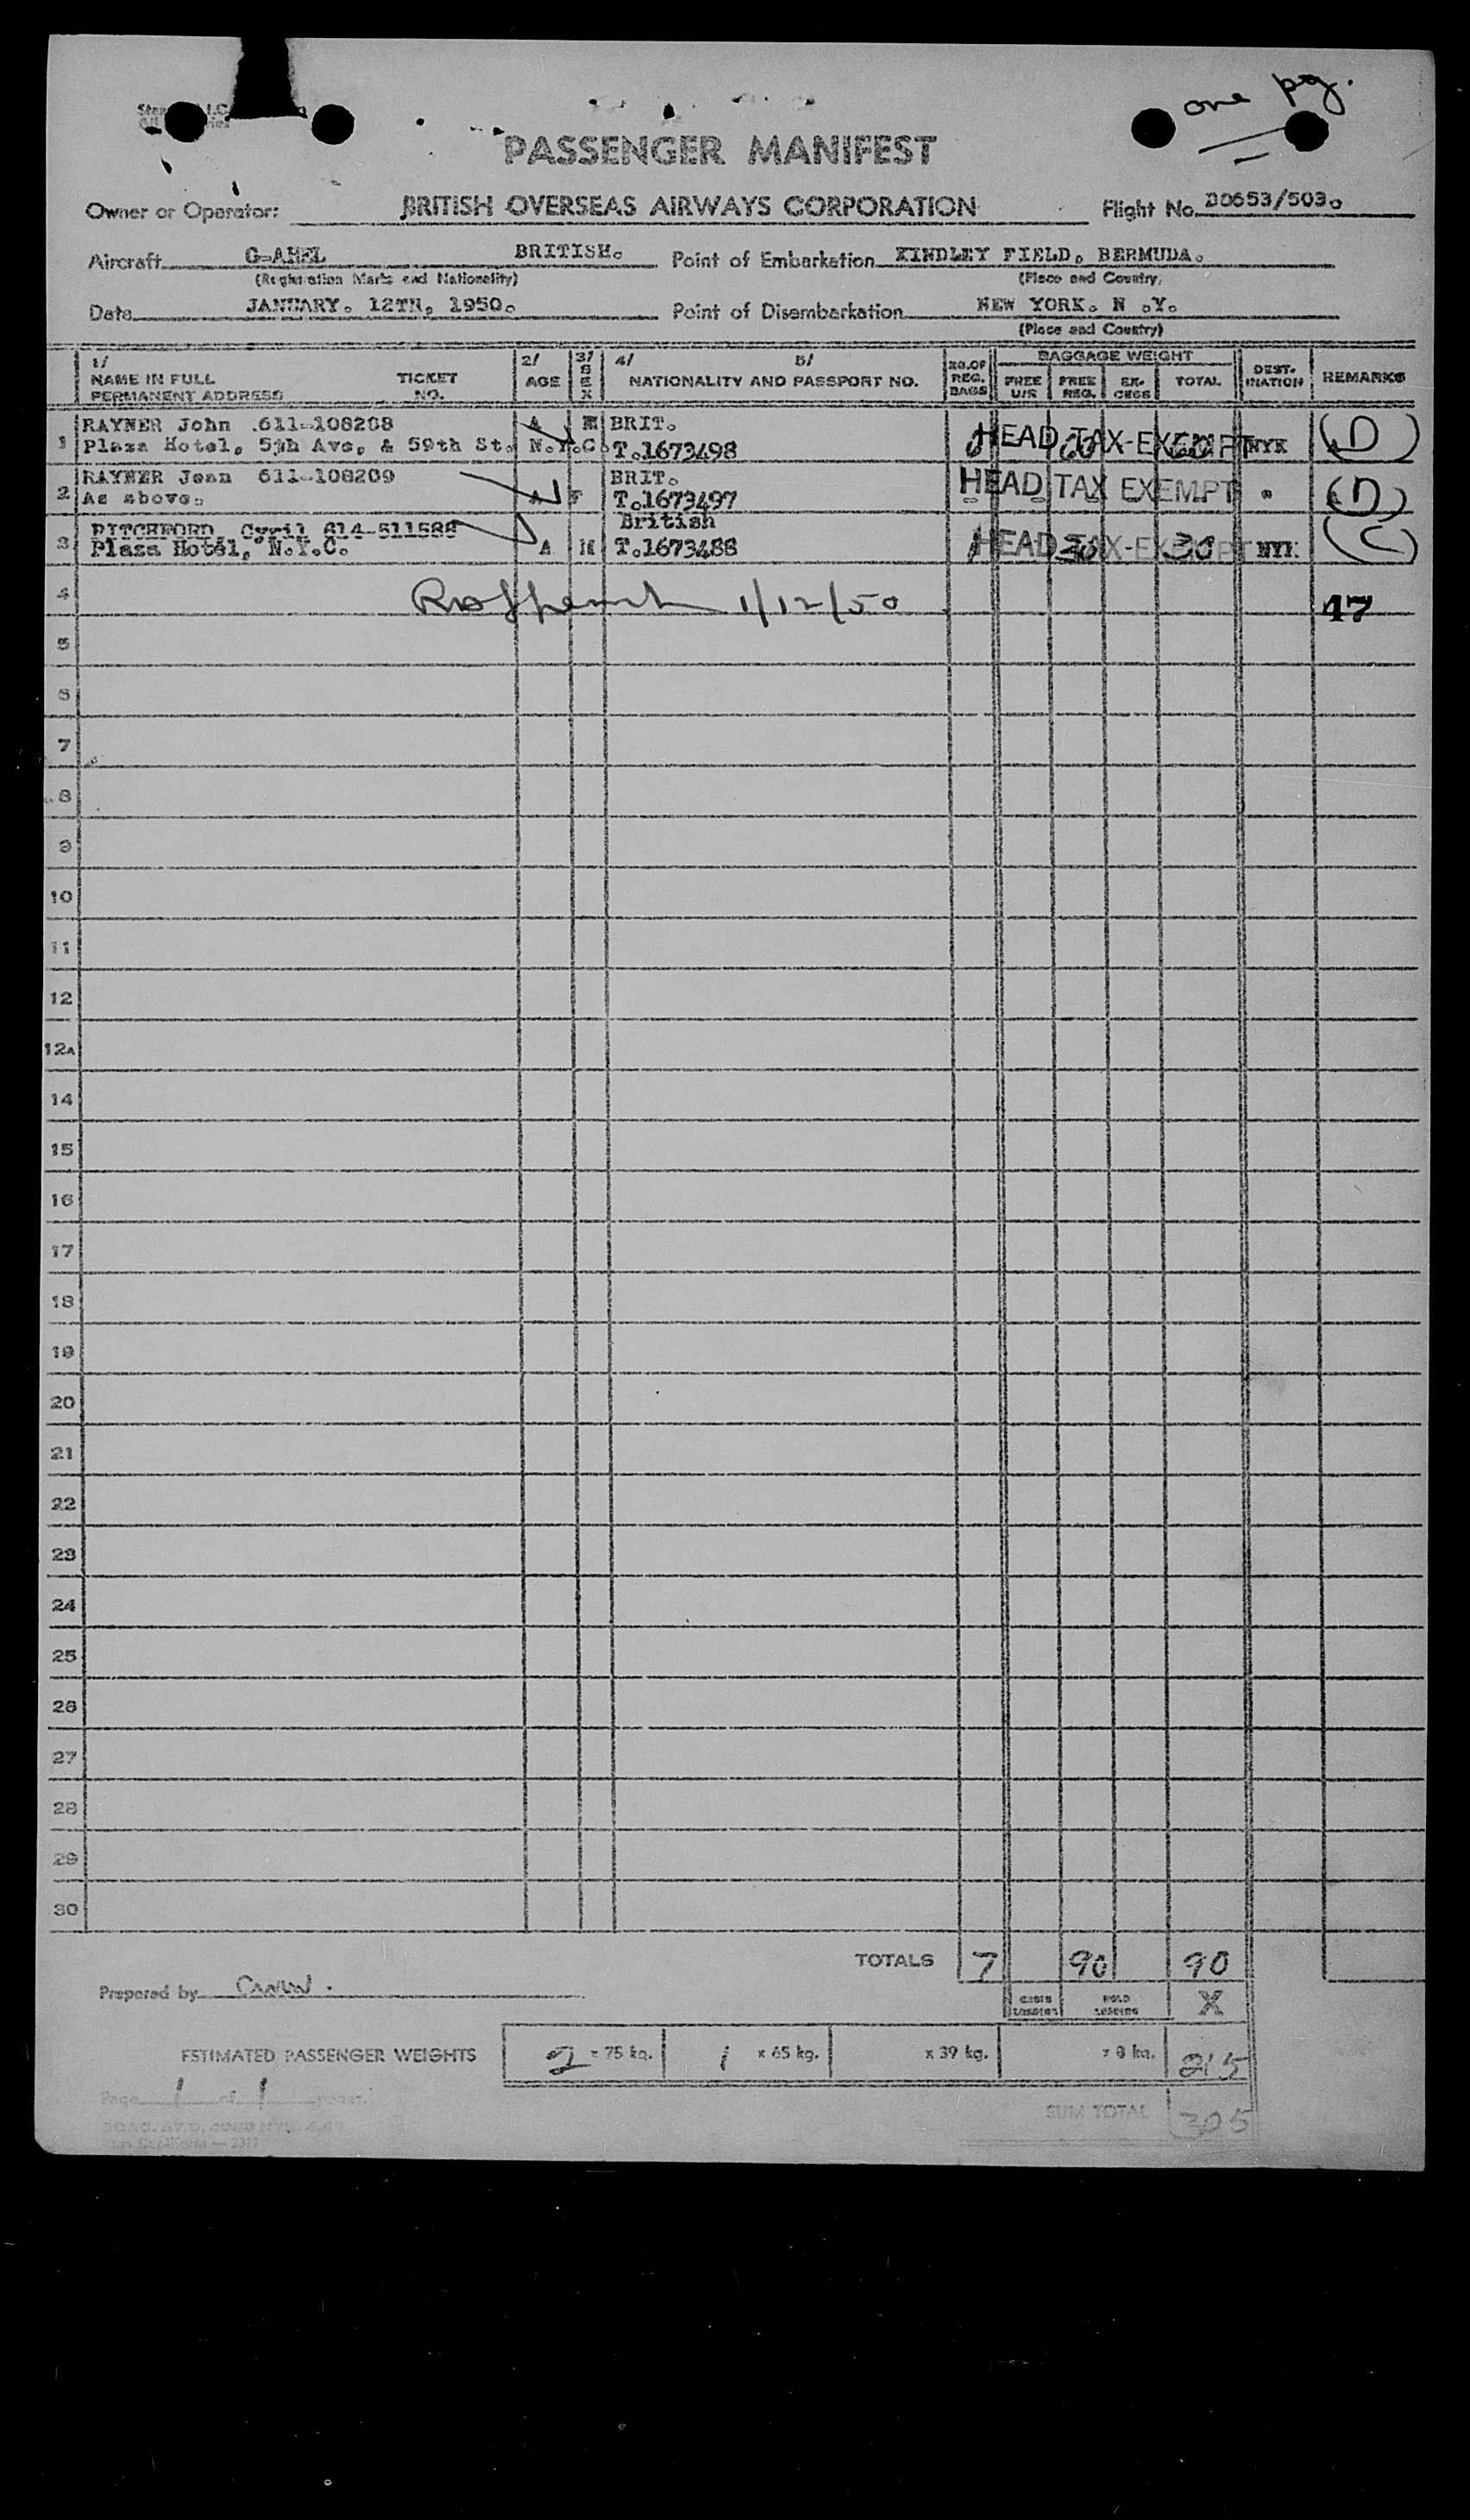 one pg.
PASSENGER MANIFEST
Owner or Operator: BRITISH OVERSEAS AIRWAYS CORPORATION Flight No. B0653/503.
Aircraft BRITISH. Point of Embarkation KINDLEY FIELD. BERMUDA.
(Registration Marks and Nationality) (Place and Country)
Date JANUARY. 12TH. 1950. Point of Disembarkation NEW YORK. N .Y.
(Place and Country)
1/ 2/ 3/ 4/ 5/ NO.OF BAGGAGE WEIGHT DEST-
NAME IN FULL TICKET AGE SEX NATIONALITY AND PASSPORT NO. REG. FREE FREE EX- TOTAL INATION REMARKS
PERMANENT ADDRESS NO. BAGS U/S REG. CESS
1 RAYNER John .611-108208 A M BRIT. HEAD TAX-EXEMPT NYK (D)
Plaza Hotel, 5th Ave, & 59th St. N.Y.C. T.1673498
2 RAYNER Jean 611-108209 A F BRIT. HEAD TAX EXEMPT " (D)
As above. T.1673497
3 PITCHFORD, Cyril 614-511588 British
Plaza Hotel, N.Y.C. A M T.1673488 1 HEAD TAX-EXEMPT 30 30 NYK (C)
4 1/12/50 47
5
6
7
8
9
10
11
12
12A
14
15
16
17
18
19
20
21
22
23
24
25
26
27
28
29
30
TOTALS 7 90 90
Prepared by CABIN LOADING HOLD LOADING X
ESTIMATED PASSENGER WEIGHTS 2 x 75 kg. 1 x 65 kg. x 39 kg. x 8 kg. 215
Page 1 of 1 pages.
SUM TOTAL 305